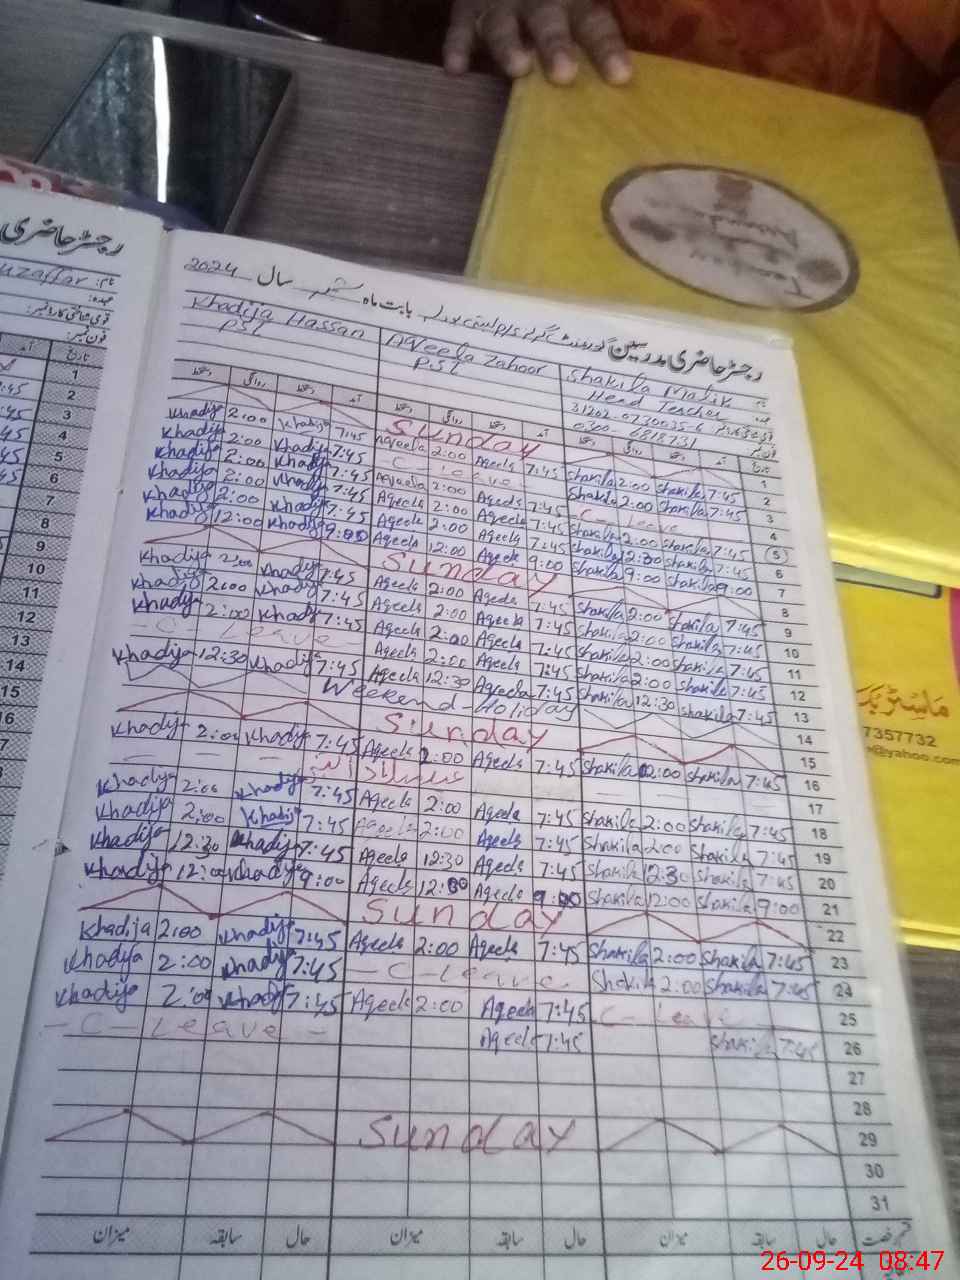 رجسٹر حاضری مدرسین
بابت ماہ ستمبر سال 2024
Shakila Malik
Head Teacher
31202-0730035-6
0300-6818731
Aqeela Zahoor
PST
Khadija Hassan
PST
تاریخ آمد دستخط روانگی دستخط آمد دستخط روانگی دستخط
1 Sunday
2 7:45 Shakila 2:00 Shakila 7:45 Aqeela 2:00 Aqeela 7:45 Khadija 2:00 Khadija
3 7:45 Shakila 2:00 Shakila C-Leave 7:45 Khadija 2:00 Khadija
4 C-Leave 7:45 Aqeela 2:00 Aqeela 7:45 Khadija 2:00 Khadija
5 7:45 Shakila 2:00 Shakila 7:45 Aqeela 2:00 Aqeela 7:45 Khadija 2:00 Khadija
6 7:45 Shakila 12:30 Shakila 7:45 Aqeela 2:00 Aqeela 7:45 Khadija 2:00 Khadija
7 9:00 Shakila 9:00 Shakila 9:00 Aqeela 12:00 Aqeela 9:00 Khadija 12:00 Khadija
8 Sunday
9 7:45 Shakila 2:00 Shakila 7:45 Aqeela 2:00 Aqeela 7:45 Khadija 2:00 Khadija
10 7:45 Shakila 2:00 Shakila 7:45 Aqeela 2:00 Aqeela 7:45 Khadija 2:00 Khadija
11 7:45 Shakila 2:00 Shakila 7:45 Aqeela 2:00 Aqeela 7:45 Khadija 2:00 Khadija
12 7:45 Shakila 2:00 Shakila 7:45 Aqeela 2:00 Aqeela C-Leave
13 7:45 Shakila 12:30 Shakila 7:45 Aqeela 12:30 Aqeela 7:45 Khadija 12:30 Khadija
14 Weekend-Holiday
15 Sunday
16 7:45 Shakila 2:00 Shakila 7:45 Aqeela 2:00 Aqeela 7:45 Khadija 2:00 Khadija
17 عید میلاد النبی
18 7:45 Shakila 2:00 Shakila 7:45 Aqeela 2:00 Aqeela 7:45 Khadija 2:00 Khadija
19 7:45 Shakila 2:00 Shakila 7:45 Aqeela 2:00 Aqeela 7:45 Khadija 2:00 Khadija
20 7:45 Shakila 12:30 Shakila 7:45 Aqeela 12:30 Aqeela 7:45 Khadija 12:30 Khadija
21 9:00 Shakila 12:00 Shakila 9:00 Aqeela 12:00 Aqeela 9:00 Khadija 12:00 Khadija
22 Sunday
23 7:45 Shakila 2:00 Shakila 7:45 Aqeela 2:00 Aqeela 7:45 Khadija 2:00 Khadija
24 7:45 Shakila 2:00 Shakila -C-Leave 7:45 Khadija 2:00 Khadija
25 C-Leave 7:45 Aqeela 2:00 Aqeela 7:45 Khadija 2:00 Khadija
26 7:45 Shakila 7:45 Aqeela -C-Leave-
27
28
29 Sunday
30
31
قسم رخصت حال سابقہ میزان حال سابقہ میزان حال سابقہ میزان
رجسٹر حاضری
نام: uzaffar
عہدہ:
قومی شناختی کارڈ نمبر:
فون نمبر:
تاریخ
1
2
3
4
5
6
7
8
9
10
11
12
13
14
15
ماسٹر بک
7357732
@yahoo.com
26-09-24 08:47